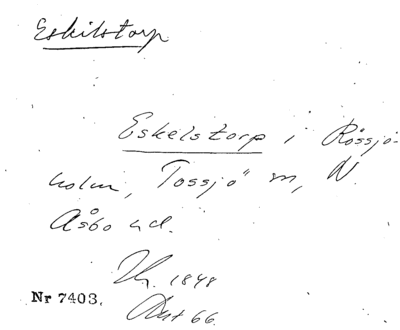 Eskilstorp
Eskelstorp i Rössjö-
holm, "Tossjö" sn, N.
Åsbo hd.
1848
Nr 7403.
Akt 66.